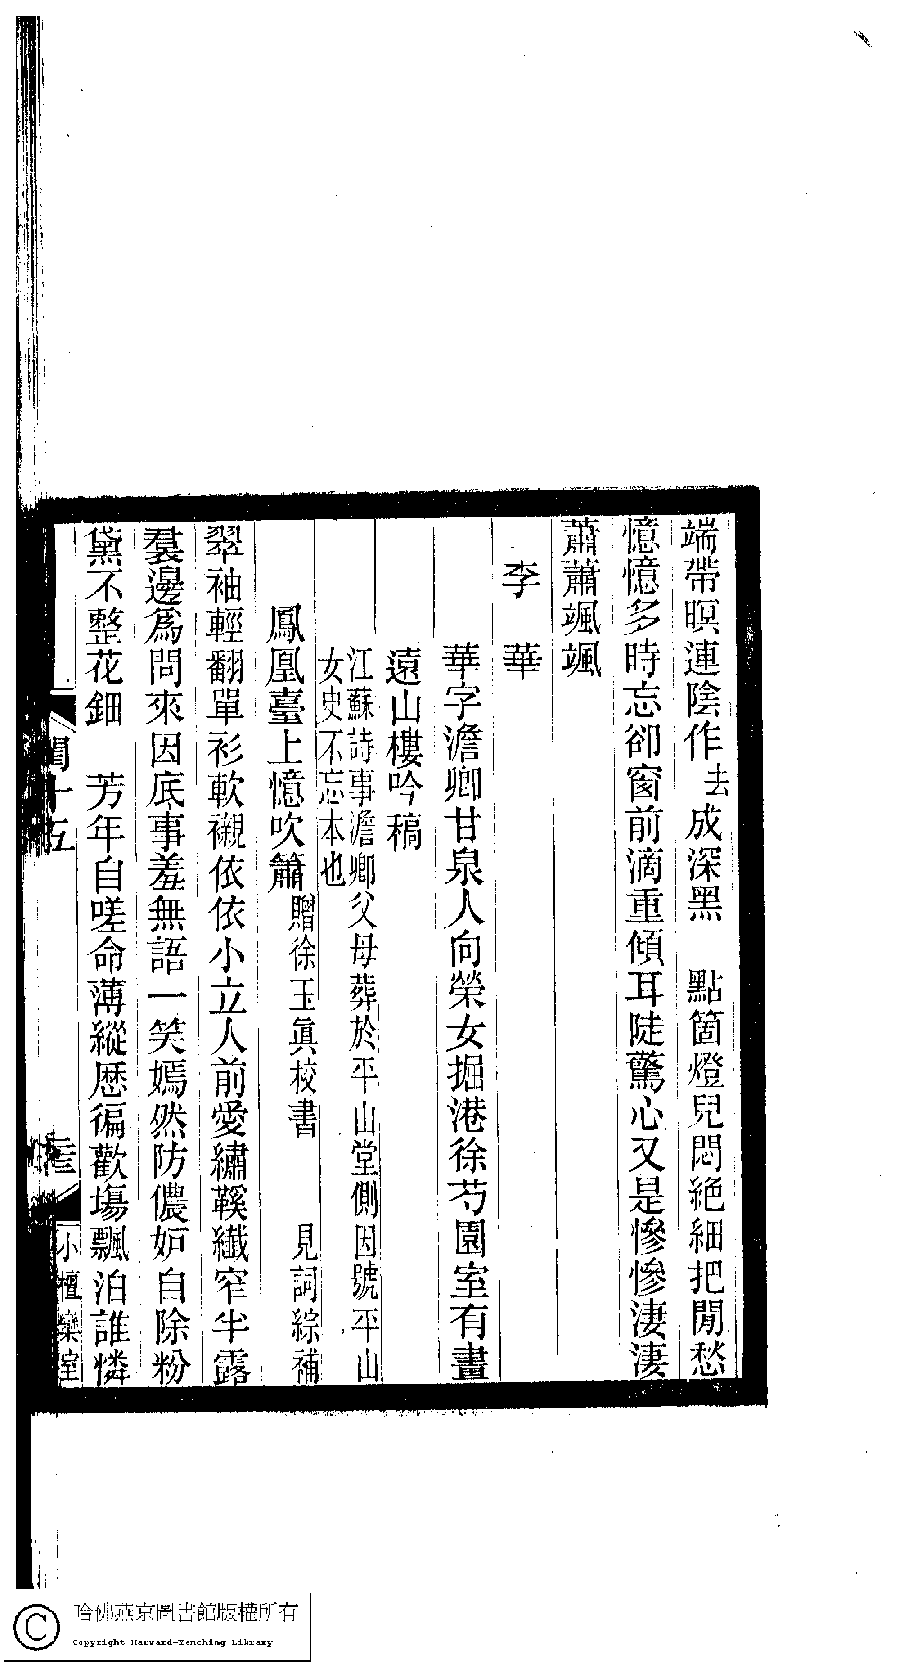 端帶暝連陰作去成深黑　點箇燈兒悶絶細把閒愁
憶憶多時忘卻窗前滴重傾耳陡驚心又是慘慘淒淒
蕭蕭颯颯
李　華
華字澹卿甘泉人向榮女掘港徐芍園室有畫
遠山樓吟稿
江蘇詩事澹卿父母葬於平山堂側因號平山
女史不忘本也
鳳凰臺上憶吹簫贈徐玉眞校書　見詞綜補
翠袖輕翻單衫軟襯依依小立人前愛繡鞵纖窄半露
裠邊爲問來因底事羞無語一笑嫣然防儂妒自除粉
黛不整花鈿　芳年自嗟命薄縱歷徧歡塲飄泊誰憐
閨十五
小檀欒室
哈佛燕京圖書館版權所有
Copyright Harvard-Yenching Library